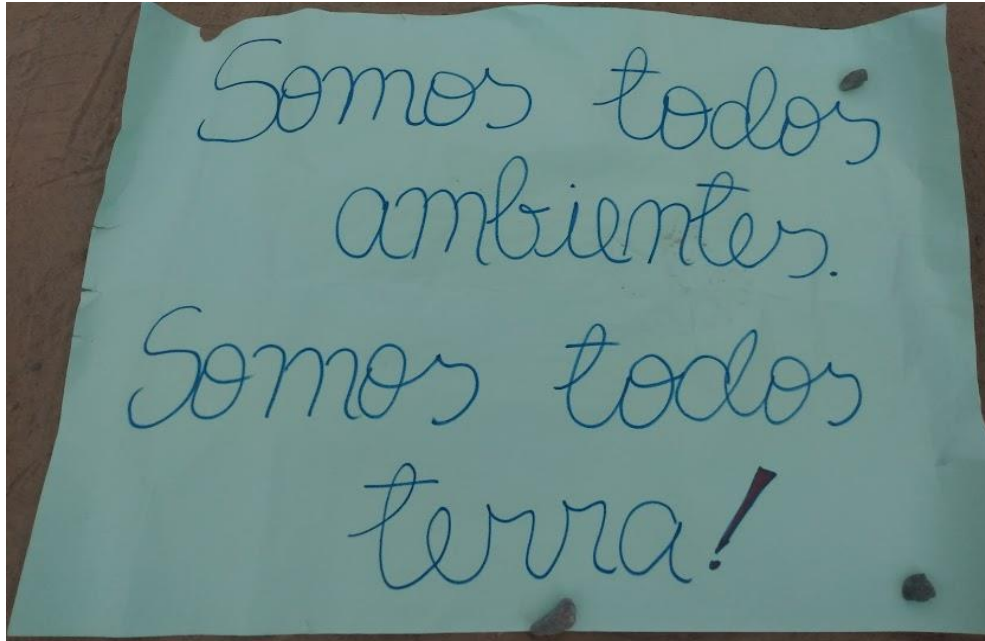 Somos todos
ambientes.
Somos todos
terra!